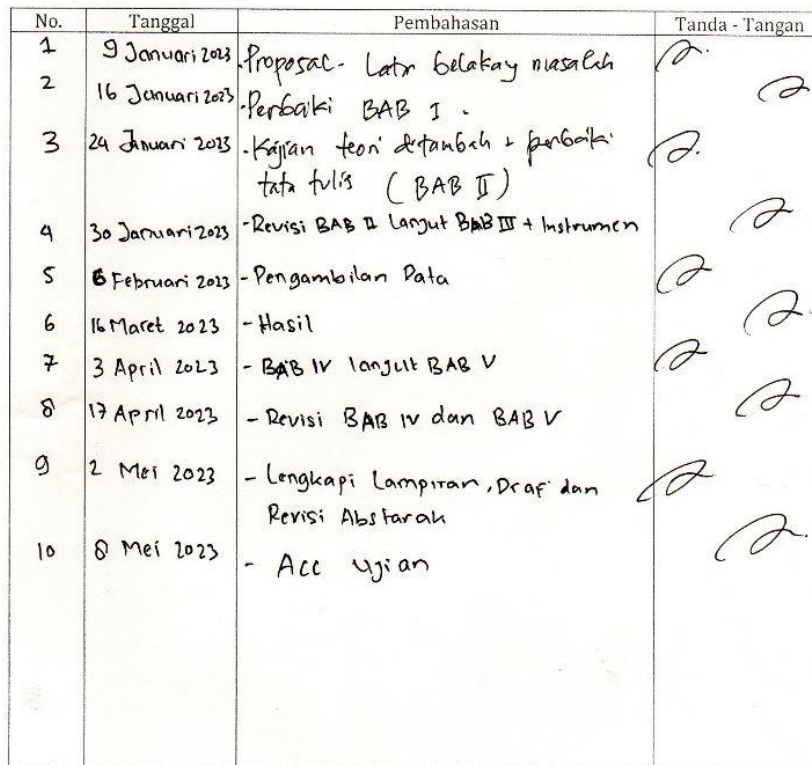 No. Tanggal Pembahasan Tanda - Tangan
1 9 Januari 2023 . Proposal - Latr belakay masalah
2 16 Januari 2023 . Perbaiki BAB I .
3 24 Januari 2023 . Kajian teori ditambah + perbaiki
tata tulis ( BAB II )
4 30 Januari 2023 - Revisi BAB II Lanjut BAB III + Instrumen
5 6 Februari 2023 - Pengambilan Data
6 16 Maret 2023 - Hasil
7 3 April 2023 - BAB IV lanjut BAB V
8 17 April 2023 - Revisi BAB IV dan BAB V
9 2 Mei 2023 - Lengkapi Lampiran, Draf dan
Revisi Abstarak
10 8 Mei 2023 - Acc Ujian